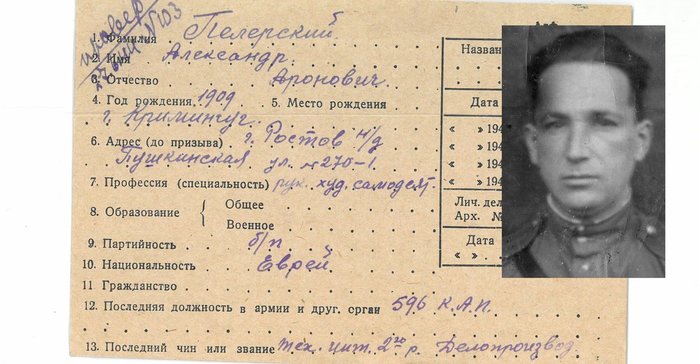 1. Фамилия Пелерский
2. Имя Александр
3. Отчество Аронович.
4. Год рождения 1909 5. Место рождения
г. Кримингуг.
6. Адрес (до призыва) г. Ростов н/д
Пушкинская ул. № 270-1.
7. Профессия (специальность) рук. худ. самодеят.
8. Образование { Общее
Военное
9. Партийность б/п
10. Национальность Еврей.
11. Гражданство
12. Последняя должность в армии и друг. орган 596 К.А.П.
13. Последний чин или звание тех. инт. 2го р. Делопроизвод.
Назван
Дата
« » 194
« » 194
« » 194
« » 194
Лич. дел
Арх. №
Дата